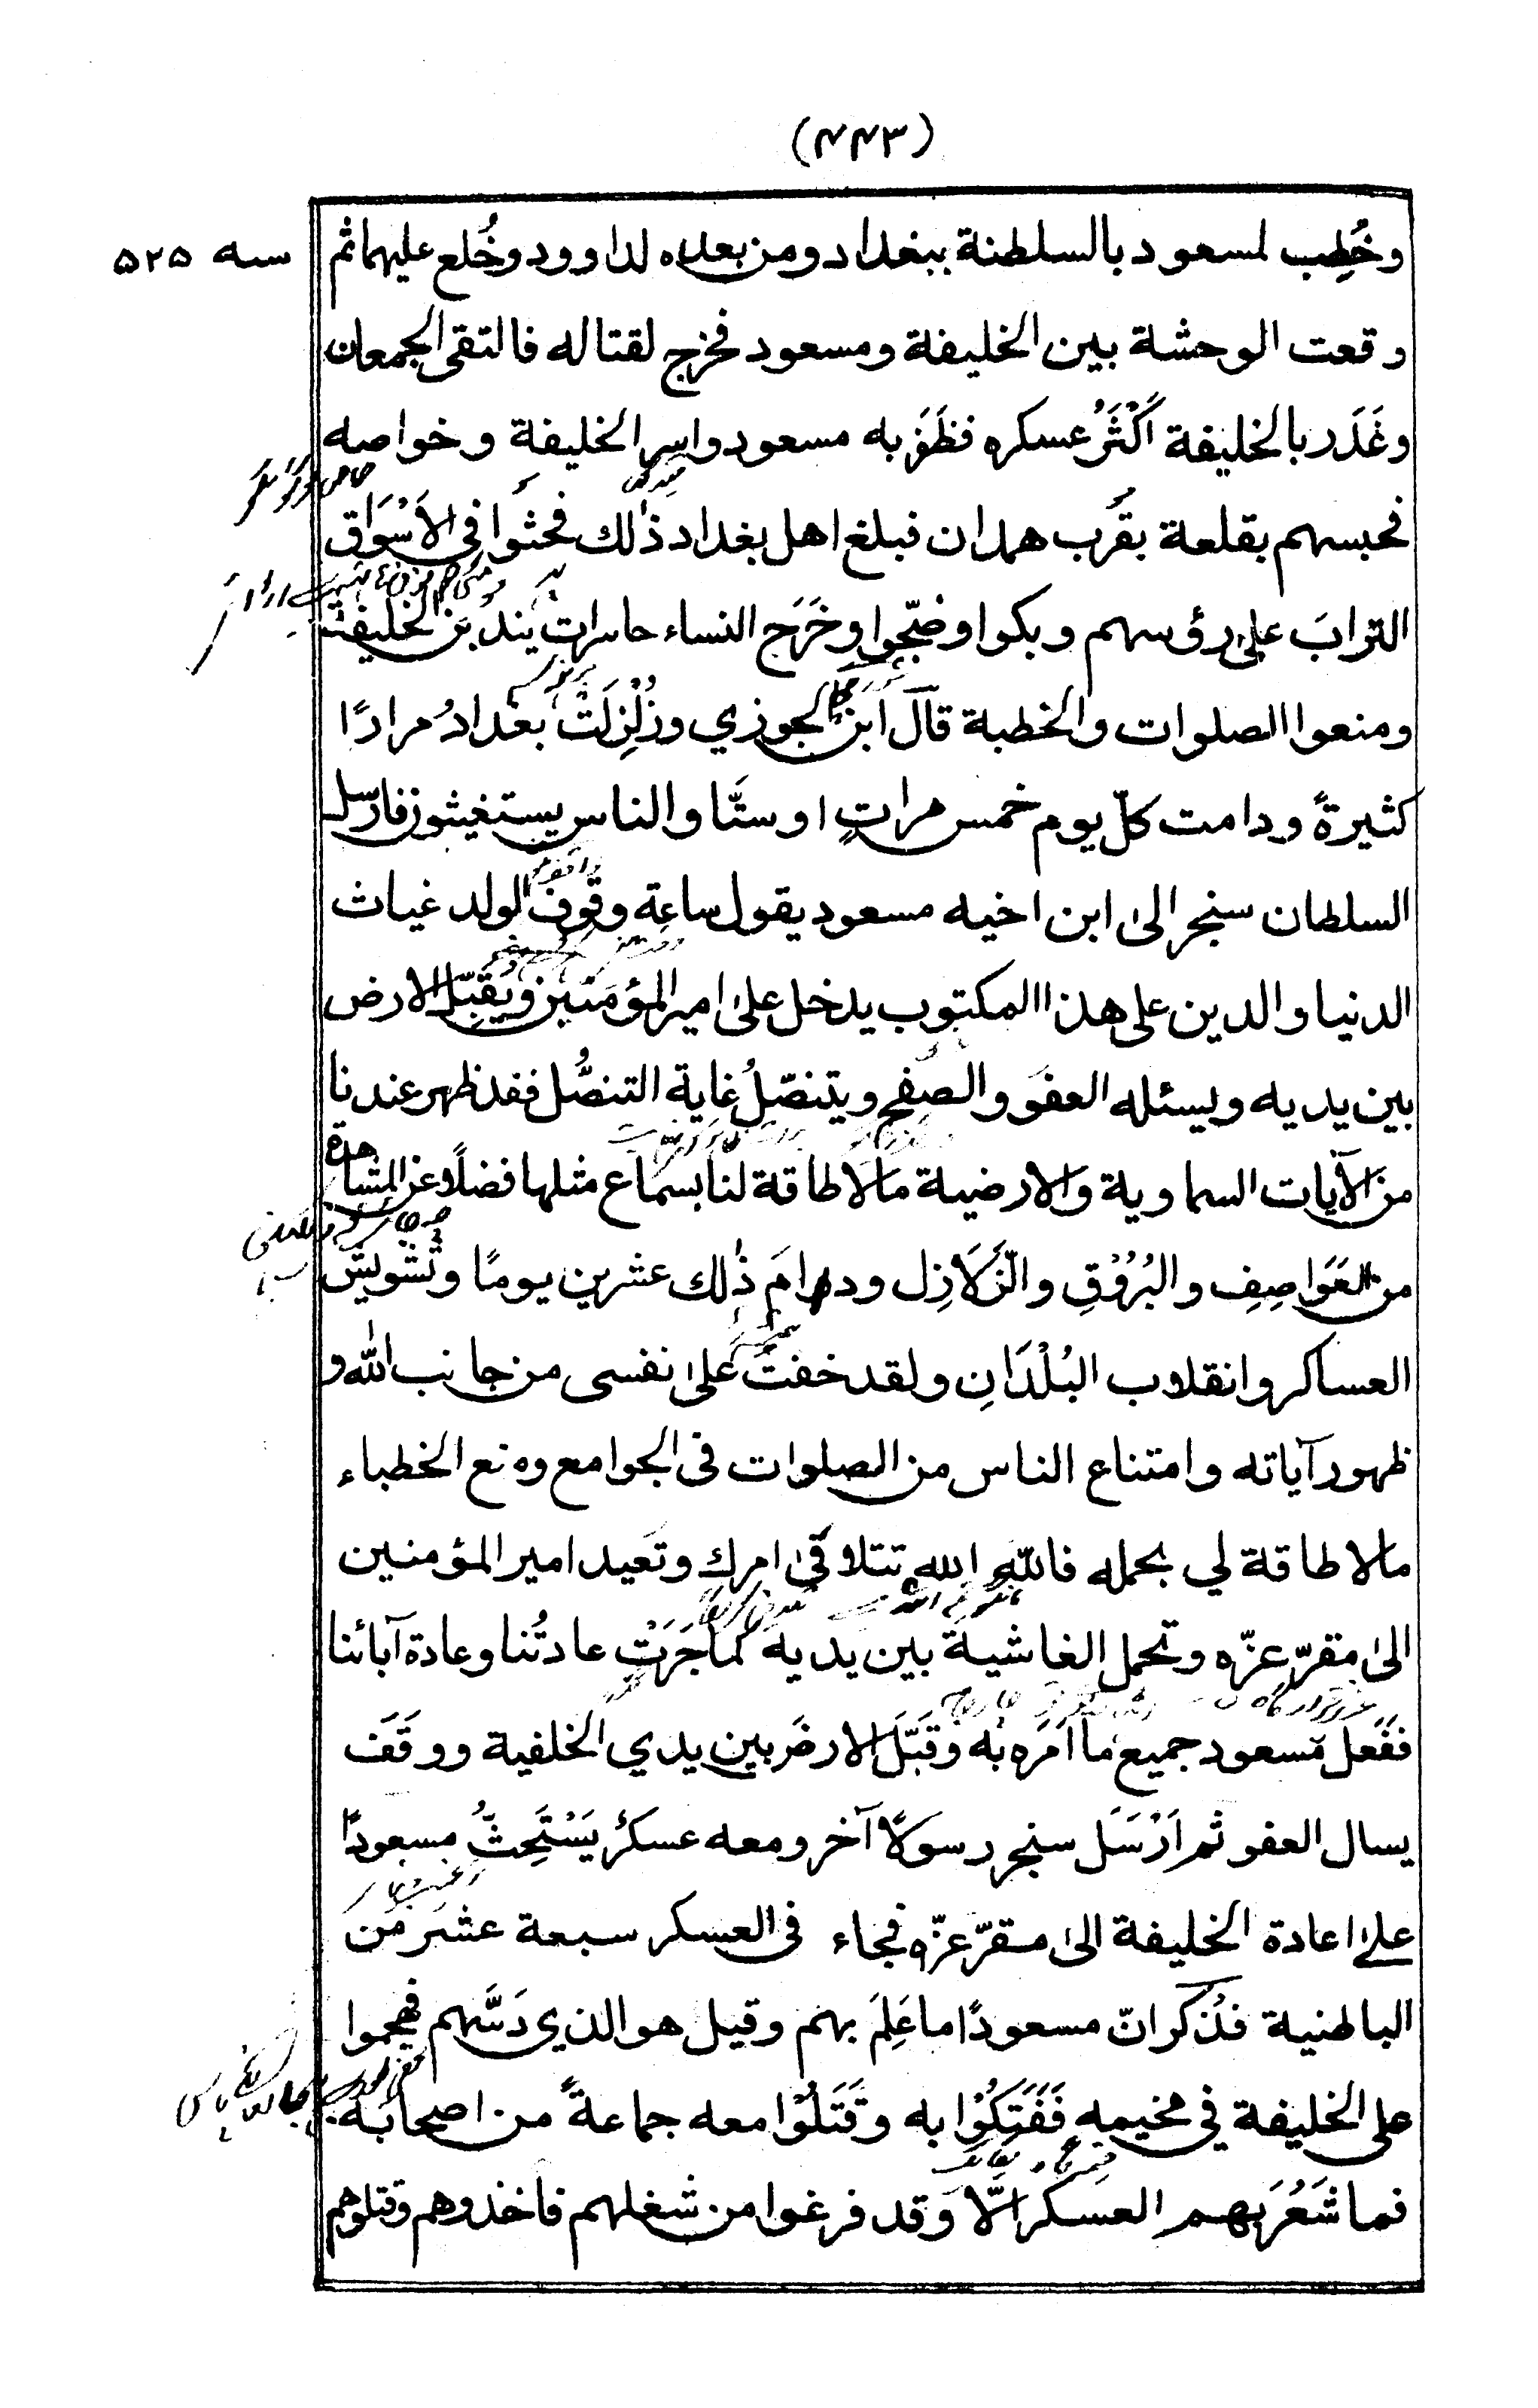 (۴۴۳)
سنه ۵۲۵
وخُطِب لمسعود بالسلطنة ببغداد ومن بعده لداوود وخُلع عليهما ثم
وقعت الوحشة بين الخليفة ومسعود فخرج لقتاله فالتقى الجمعان
وغَدَر بالخليفة اَكْثَرُ عسكره فظَفَر به مسعود واسر الخليفة وخواصه
فحبسهم بقلعة بقُرب همدان فبلغ اهل بغداد ذٰلك فحثوا فى الاَسْوَاق
الترابَ علىٰ رؤسهم وبكوا وضجّوا وخَرَج النساء حاسرات يندبن الخليفة
ومنعوا الصلوات والخطبة قال ابن الجوزي وزُلْزِلَتْ بغدادُ مرارًا
كثيرةً ودامت كلّ يوم خمس مراتٍ او ستًّا والناس يستغيثون فارسل
السلطان سنجر الىٰ ابن اخيه مسعود يقول ساعة وقوف الولد غياث
الدنيا والدين على هذا المكتوب يدخل علىٰ امير المؤمنين ويُقبّل الارض
بين يديه ويسئله العفوَ والصفح ويتنصّلُ غاية التنصُّل فقد ظهر عندنا
من الآيات السماوية والارضية مالا طاقة لنا بسماع مثلها فضلًا عن المشاهدة
من العَوَاصِفِ والبُرُوْقِ والزَّلَازِل ودامَ ذٰلك عشرين يومًا وتشويش
العساكر وانقلاب البُلْدَانِ ولقد خفتُ علىٰ نفسى من جانب الله و
ظهور آياته وامتناع الناس من الصلوات فى الجوامع ومنع الخطباء
مالا طاقة لي بحمله فاللّٰه الله تتلافىٰ امرك وتعيد امير المؤمنين
الىٰ مقرّ عزّه وتحمل الغاشية بين يديه كما جَرَتْ عادتُنا وعادة آبائنا
ففَعل مسعود جميع ما اَمَره به وقَبّلَ الارضَ بين يدي الخلفية ووقَفَ
يسال العفو ثم اَرْسَل سنجر رسولًا آخر ومعه عسكرٌ يَسْتَحِثُّ مسعودًا
علىٰ اعادة الخليفة الىٰ مقرّ عزّه فجاء فى العسكر سبعة عشر من
الباطنية فذكر انّ مسعودًا ما عَلِمَ بهم وقيل هو الذي دَسَّهم فهجموا
على الخليفة في مخيمه فَفَتَكُوْا به وقَتَلُوْا معه جماعةً من اصحابه
فما شَعُرَ بهم العسكر الّا وقد فرغوا من شغلهم فاخذوهم وقتلوهم